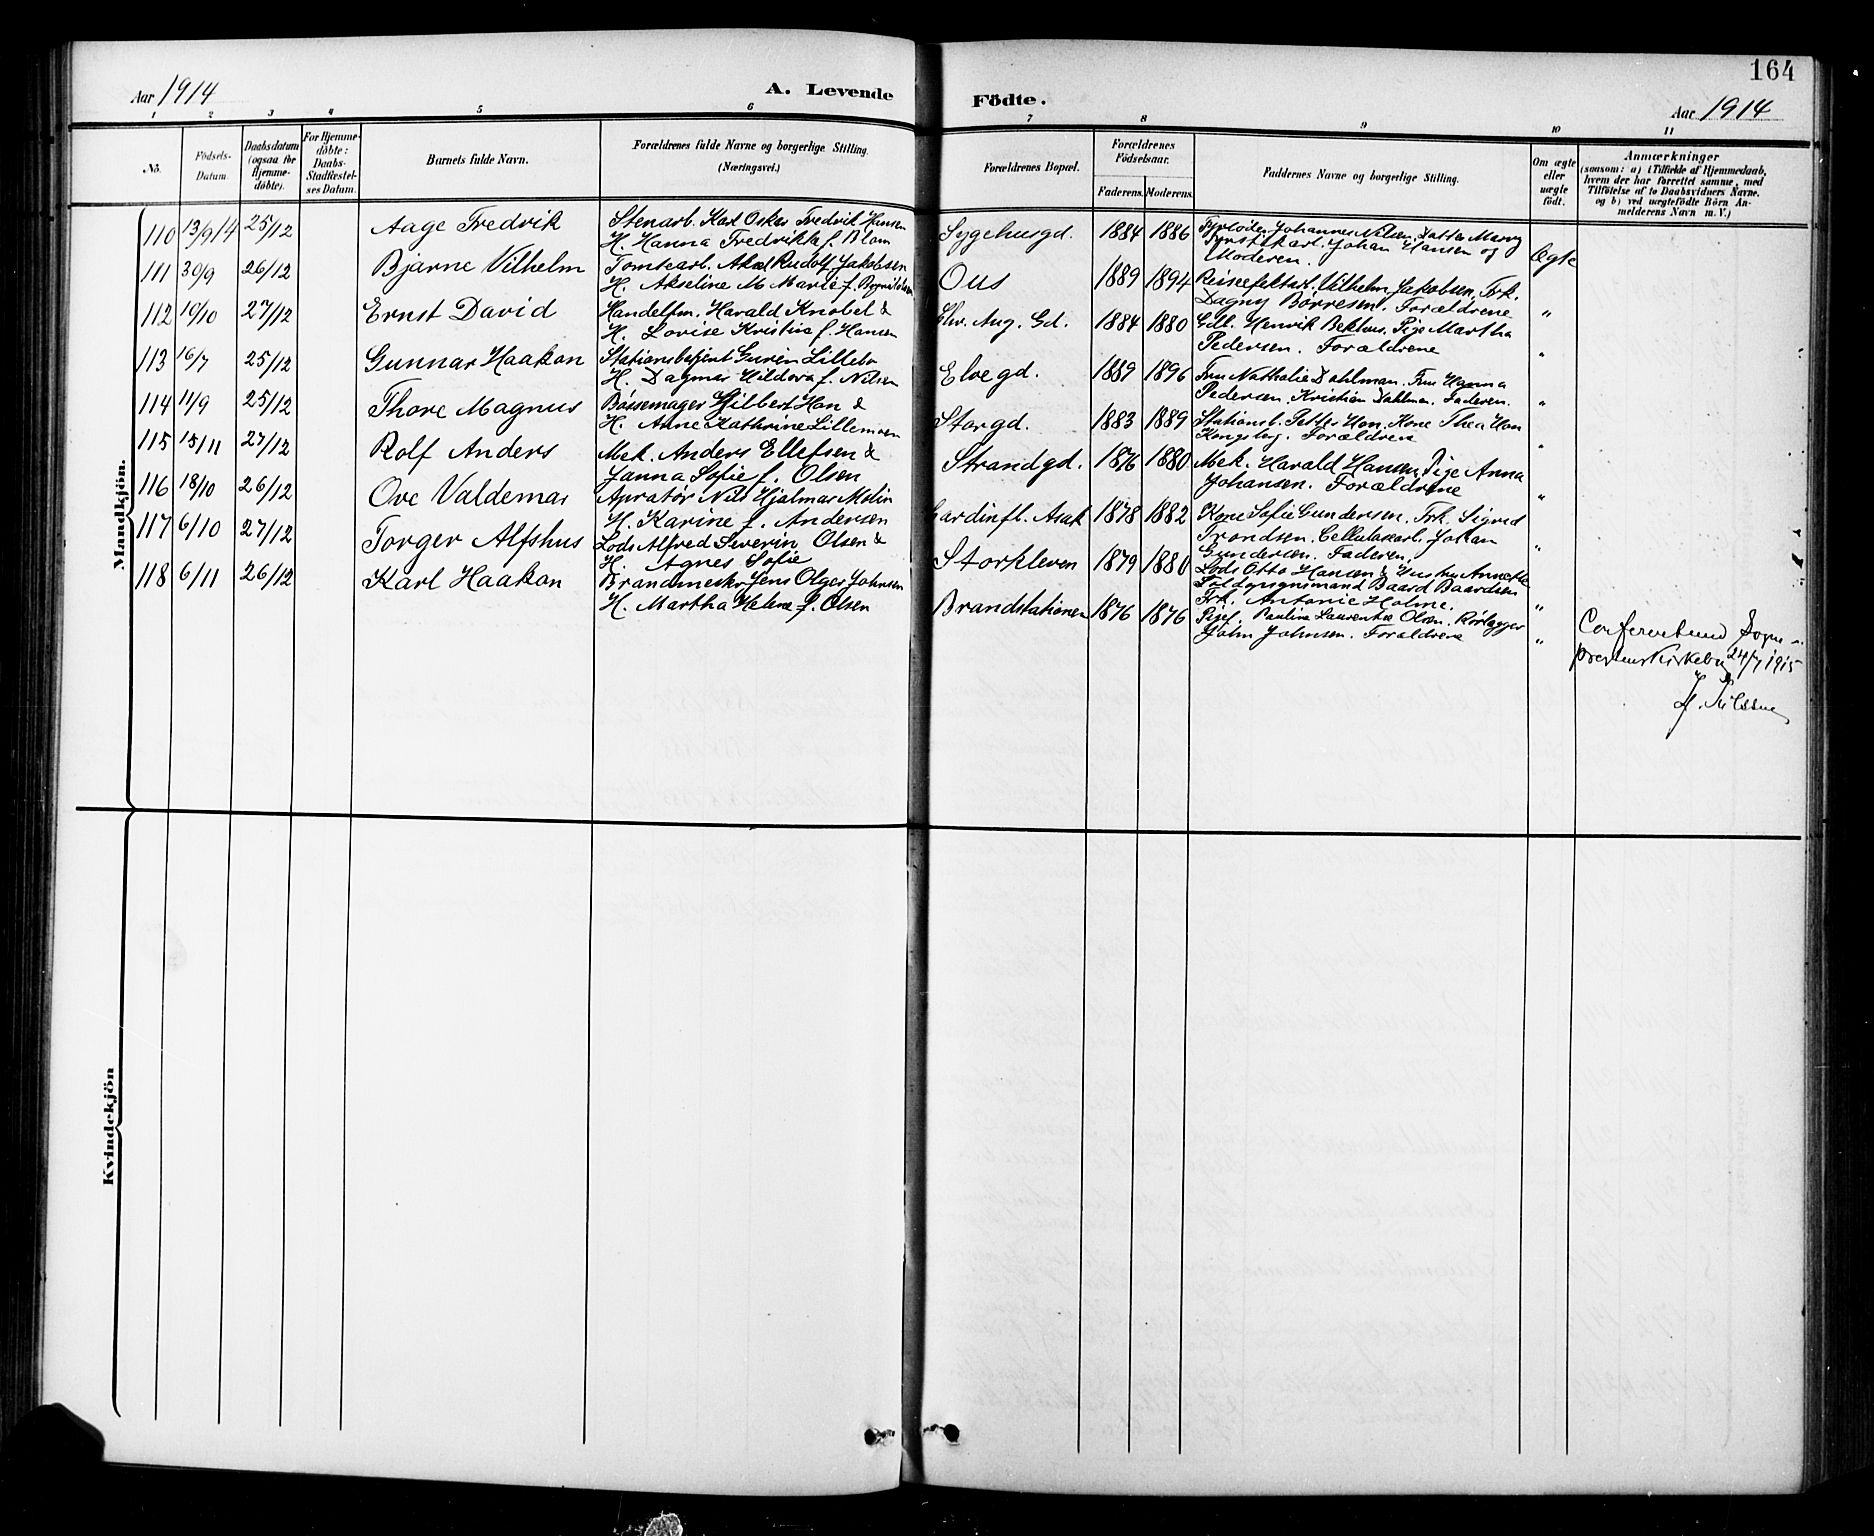 164
Aar 1914
A. Levende Födte.
Aar 1914
1 2 3 4 5 6 7 8 9 10 11
No.
Födsels-Datum.
Daabsdatum (ogsaa for Hjemmedöbte).
For Hjemmedöbte: Daabs-Stadfæstelses Datum.
Barnets fulde Navn.
Forældrenes fulde Navne og borgerlige Stilling. (Næringsvei.)
Forældrenes Bopæl.
Forældrenes Födselsaar.
Faderens. Moderens.
Faddernes Navne og borgerlige Stilling.
Om ægte eller uægte födt.
Anmærkninger
(saasom: a) i Tilfælde af Hjemmedaab, hvem der har forrettet samme, med Tilföielse af to Daabsvidners Navne. og b) ved uægtefödte Börn Anmelderens Navn m. V.)
Mandkjön.
110 13/9 14 25/12 Aage Fredrik Stenarb. Karl Oskar Fredrik Hansen
H. Hanna Fredrikke f. Blom Sygehusgd. 1884 1886 Fyrbøder Johannes Nilsen, Datter Mary
Johan Hansen og
Moderen. Ægte
111 30/9 26/12 Bjarne Vilhelm Tomtearb. Aksel Rudolf Jakobsen
H. Akseline M. Marie f. Ous 1889 1894 Vilhelm Jakobsen, Frk.
Dagny Börresen. Forældrene "
112 10/10 27/12 Ernst David Handelfm. Harald Knobel &
H. Lovise Kristina f. Hansen Chr. Aug. Gd. 1884 1880 Gdl. Henrik Bekhus. Pige Martha
Pedersen. Forældrene "
113 16/7 25/12 Gunnar Haakon Stationsbetjent Lillebo
H. Dagmar Hildora f. Nilsen Elvegd. 1889 1896 Fru Nathalie Dahlman. Fru Hanna
Pedersen. Kristian Dahlman. Faderen. "
114 11/9 25/12 Thore Magnus Bössemager Gilbert Hon &
H. Anne Kathrine Lillemoen Storgd. 1883 1889 Stationsb. Petter Hon, Kone Thea Hon
Kongsberg. Forældrene "
115 15/11 27/12 Rolf Anders Mek. Anders Ellefsen &
Janna Sofie f. Olsen Strandgd. 1876 1880 Mek. Harald Hansen, Pige Anna
Johansen. Forældrene "
116 18/10 26/12 Ove Valdemar Apratør Nils Hjalmar Molin
H. Karine f. Andersen Gardinfl. Asak 1878 1882 Kone Sofie Gundersen. Frk. Sigrid
Trondsen. Cellulosearb. Johan
Gundersen. Faderen. "
117 6/10 27/12 Torger Alfshus Lods Alfred Severin Olsen &
H. Agnes Sofie Storkleven 1879 1880 Lods Otto Hansen & Hustru
Baard Baardsen
Frk. Antonie Holme. "
118 6/11 26/12 Karl Haakon Brandmester Jens Olger Johnsen
H. Martha Helene f. Olsen Brandstationen 1876 1876 Pige. Pauline Laurentse Olsen. Rørlægger
John Johnsen. Forældrene "
Sogne-
prestens Kirkebog 24/7 1915
Kvindekjön